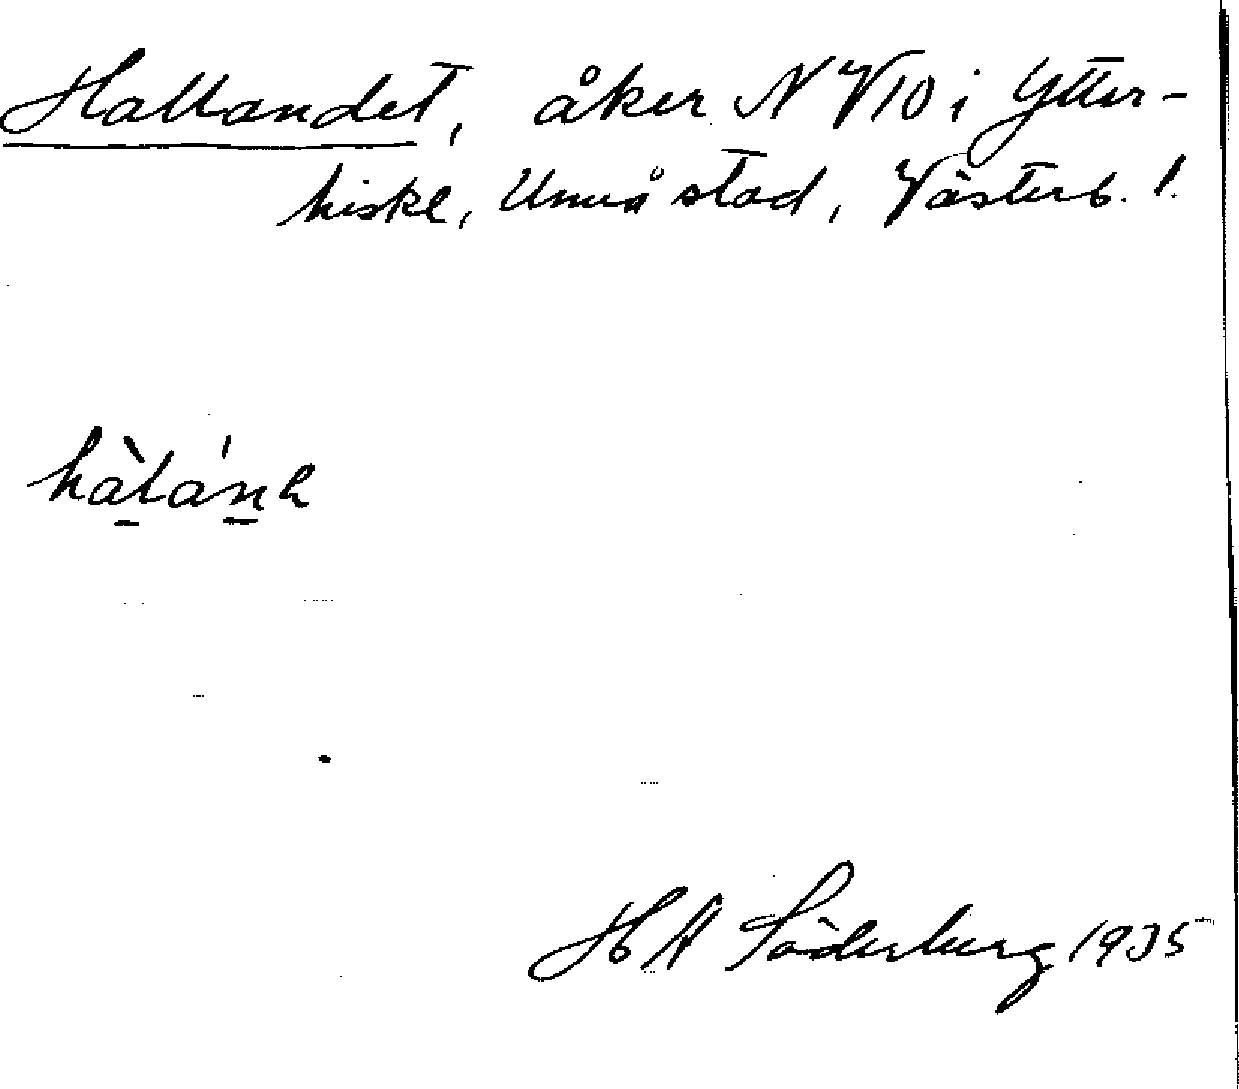 Hallandet, åker N V10 i Ytter-
hiske, Umeå stad, Västerb. l.
hàlánh
H A Söderberg 1935